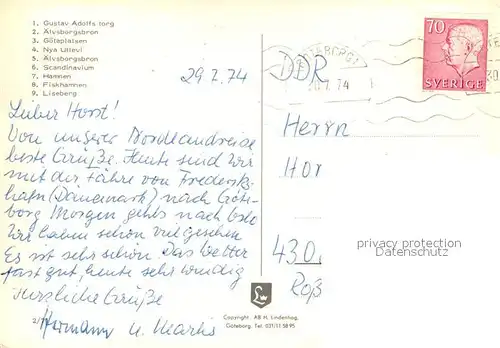 1. Gustav Adolfs torg
2. Älvsborgsbron
3. Götaplatsen
4. Nya Ullevi
5. Älvsborgsbron
6. Scandinavium
7. Hamnen
8. Fiskhamnen
9. Liseberg
29.7.74
Lieber Horst!
Von unserer Nordlandreise
beste Grüße. Heute sind wir
mit der Fähre von Frederiks-
hafn (Dänemark) nach Göte-
borg Morgen gehts nach Oslo
Wir haben schon viel gesehen
Es ist sehr schön. Das Wetter
fast gut, heute sehr windig
Herzliche Grüße
Hermann u.
Copyright: AB H. Lindenhag,
Göteborg. Tel. 031/11 58 95
GÖTEBORG 1
74
70
SVERIGE
DDR
Herrn
Hor
430
Roß
privacy protection
Datenschutz